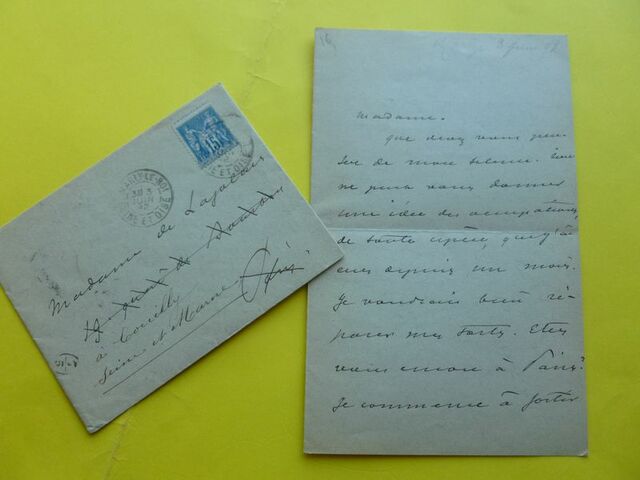 15
MARLY-LE-ROI
3
JUIN
92
SNE ET OISE
Madame de Lazalais
19 quai de
à Couilly
Seine et Marne
16
3 Juin 92
Madame.
que devez vous pen-
ser de mon silence.
ne peut vous donner
une idée des occupations
de toute espèce que j'ai
eues depuis un mois.
Je voudrais bien ré-
parer mes torts. Etes
vous encore à Paris?
Je commence à sortir